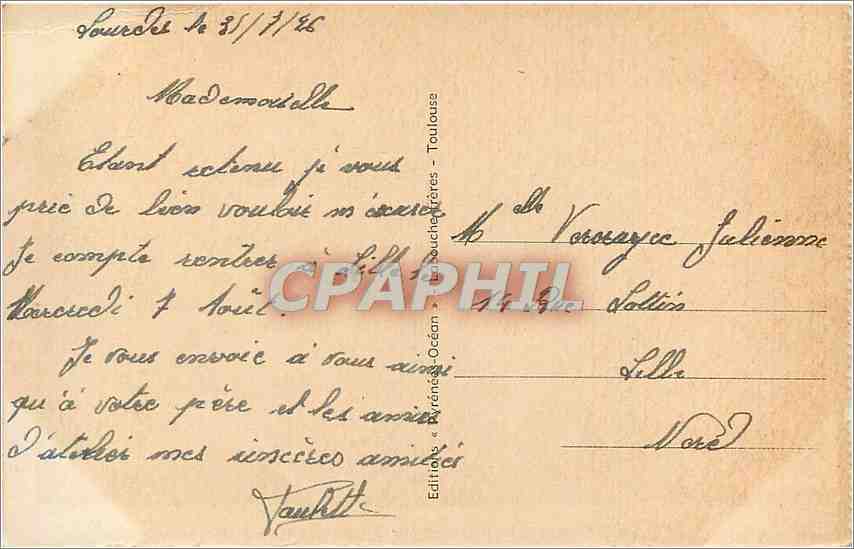 Lourdes le 31/7/46
Mademoiselle
Etant retenu je vous
prie de bien vouloir m'éxcuser
Je compte rentrer à Lille le
Mercredi 7 Août.
Je vous envoie à vous ainsi
qu'à votre père et les amies
d'atelier mes sincères amitiés
Paulette
Melle Verraye Julienne
14 Rue Lottin
Lille
Nord
Editions « Pyrénées-Océan » Labouche Frères - Toulouse
CPAPHIL